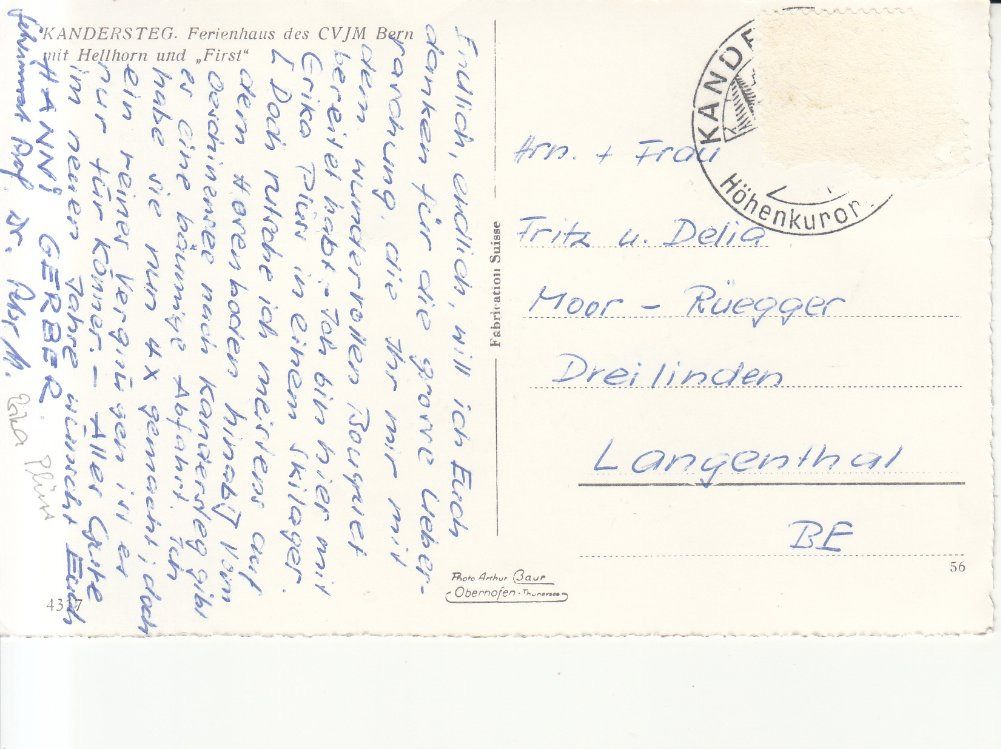 KANDERSTEG. Ferienhaus des CVJM Bern
mit Hellhorn und „First“
Endlich, endlich, will ich Euch
danken für die grosse Ueber-
raschung, die Ihr mir mit
dem wundervollen Bouquet
bereitet habt. - Ich bin hier mit
Erika Plüss in einem Skilager.
[Doch rutsche ich meistens auf
dem Hosenboden hinab!] Vom
Oeschinensee nach Kandersteg gibt
es eine bäumige Abfahrt. Ich
habe sie nun 4x gemacht, doch
ein reines Vergnügen ist es
nur für Könner. - Alles Gute
im neuen Jahre wünscht Euch
HANNI GERBER.
Prof. Dr. Peter M.
Erika Plüss
4337
Fabrication Suisse
Photo Arthur Baur
Oberhofen-Thunersee
KANDE
Höhenkuror
Hrn. + Frau
Fritz u. Delia
Moor - Rüegger
Dreilinden
Langenthal
BE
56